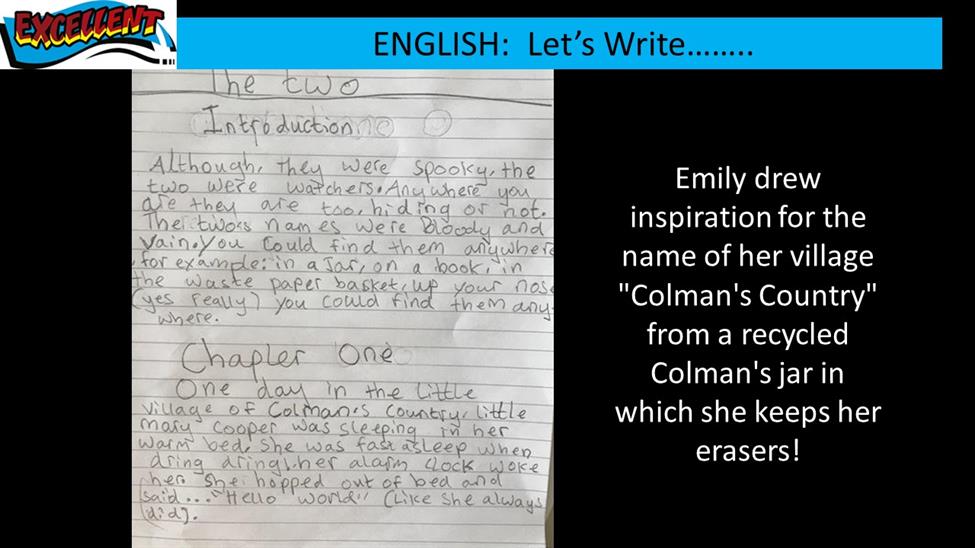 EXCELLENT
ENGLISH: Let's Write........
The two
Introduction
Although, they were spooky, the
two were watchers. Anywhere you
are they are too, hiding or not.
The two's names were Bloody and
Vain. You could find them anywhere
for example: in a Jar, on a book, in
the waste paper basket, up your nose
(yes really) you could find them any-
where.
Chapler One
One day in the little
village of Colman's Country, little
mary Cooper was sleeping in her
warm bed. She was fast asleep when
dring dring!, her alarm clock woke
her. She hopped out of bed and
said... "Hello world" (Like she always
did).
Emily drew
inspiration for the
name of her village
"Colman's Country"
from a recycled
Colman's jar in
which she keeps her
erasers!